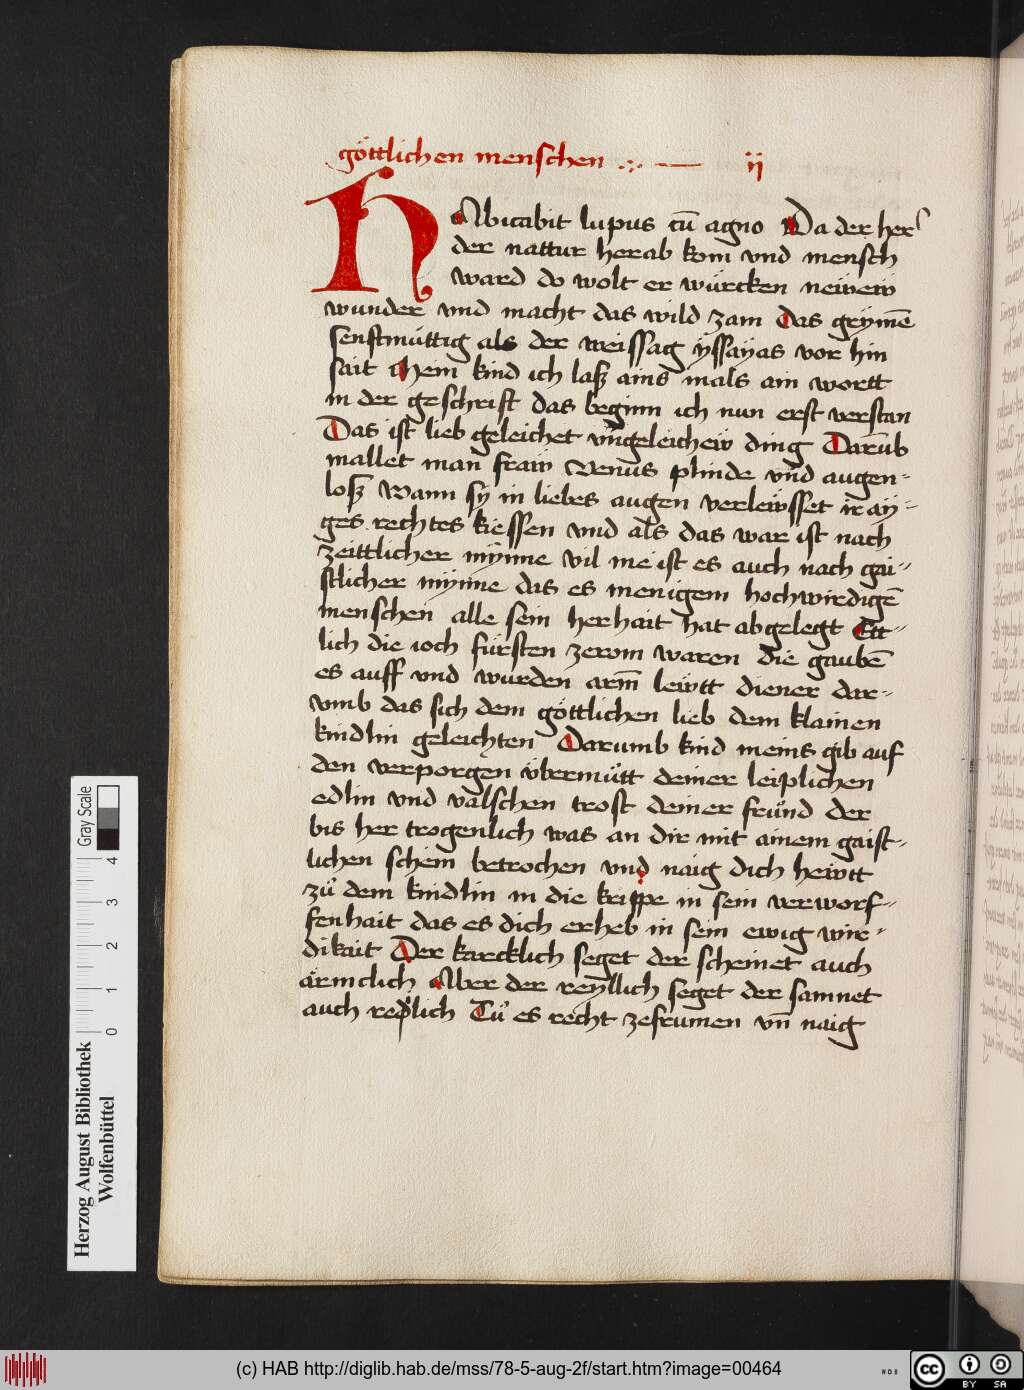 göttlichen menschen ·:· — ij
HAbitabit lupus cū agno Da der her
der nattur herab kom vnd mensch
ward do wolt er würcken neẅew
wunder vnd macht das wild zam Das grym̄e
senftmüttig als der weissag ÿssaÿas vor hin
sait Mein kind ich lasz ains mals ain wortt
in der geschrift das beginn ich nun erst verstan
Das ist lieb geleichet vngeleichew ding Darūb
mallet man fraw Venus plinde vnd augen-
losz Wann sÿ in liebes augen verleẅsset ir aÿ-
ges rechtes kiessen vnd als das war ist nach
zeittlicher mÿnne vil me ist es auch nach gai-
stlicher mÿnne das es menigem hochwirdigē
menschen alle sein herhait hat abgelegt Ett-
lich die ioch fürsten zerom waren die gaubē
es auff vnd wurden arm̄ leẅtt diener dar-
vmb das sich dem göttlichen lieb dem klainen
kindlin geleichten Darumb kind meins gib auf
den verporgen v̈bermůtt deiner leiplichen
edlin vnd valschen trost deiner fründ der
bis her trogenlich was an dir mit ainem gaist-
lichen schein betrochen vnd naig dich heẅtt
zů dem kindlin in die krippe in sein verworf-
fenhait das es dich erheb in sein ewig wir-
dikait Der karcklich seget der scheinet auch
ärmclich Aber der reÿllich seget der samnet
auch replich Tů es recht zefrumen vn̄ naig
Herzog August Bibliothek
Wolfenbüttel
0 1 2 3 4
Gray Scale
(c) HAB http://diglib.hab.de/mss/78-5-aug-2f/start.htm?image=00464
WDB
cc BY SA